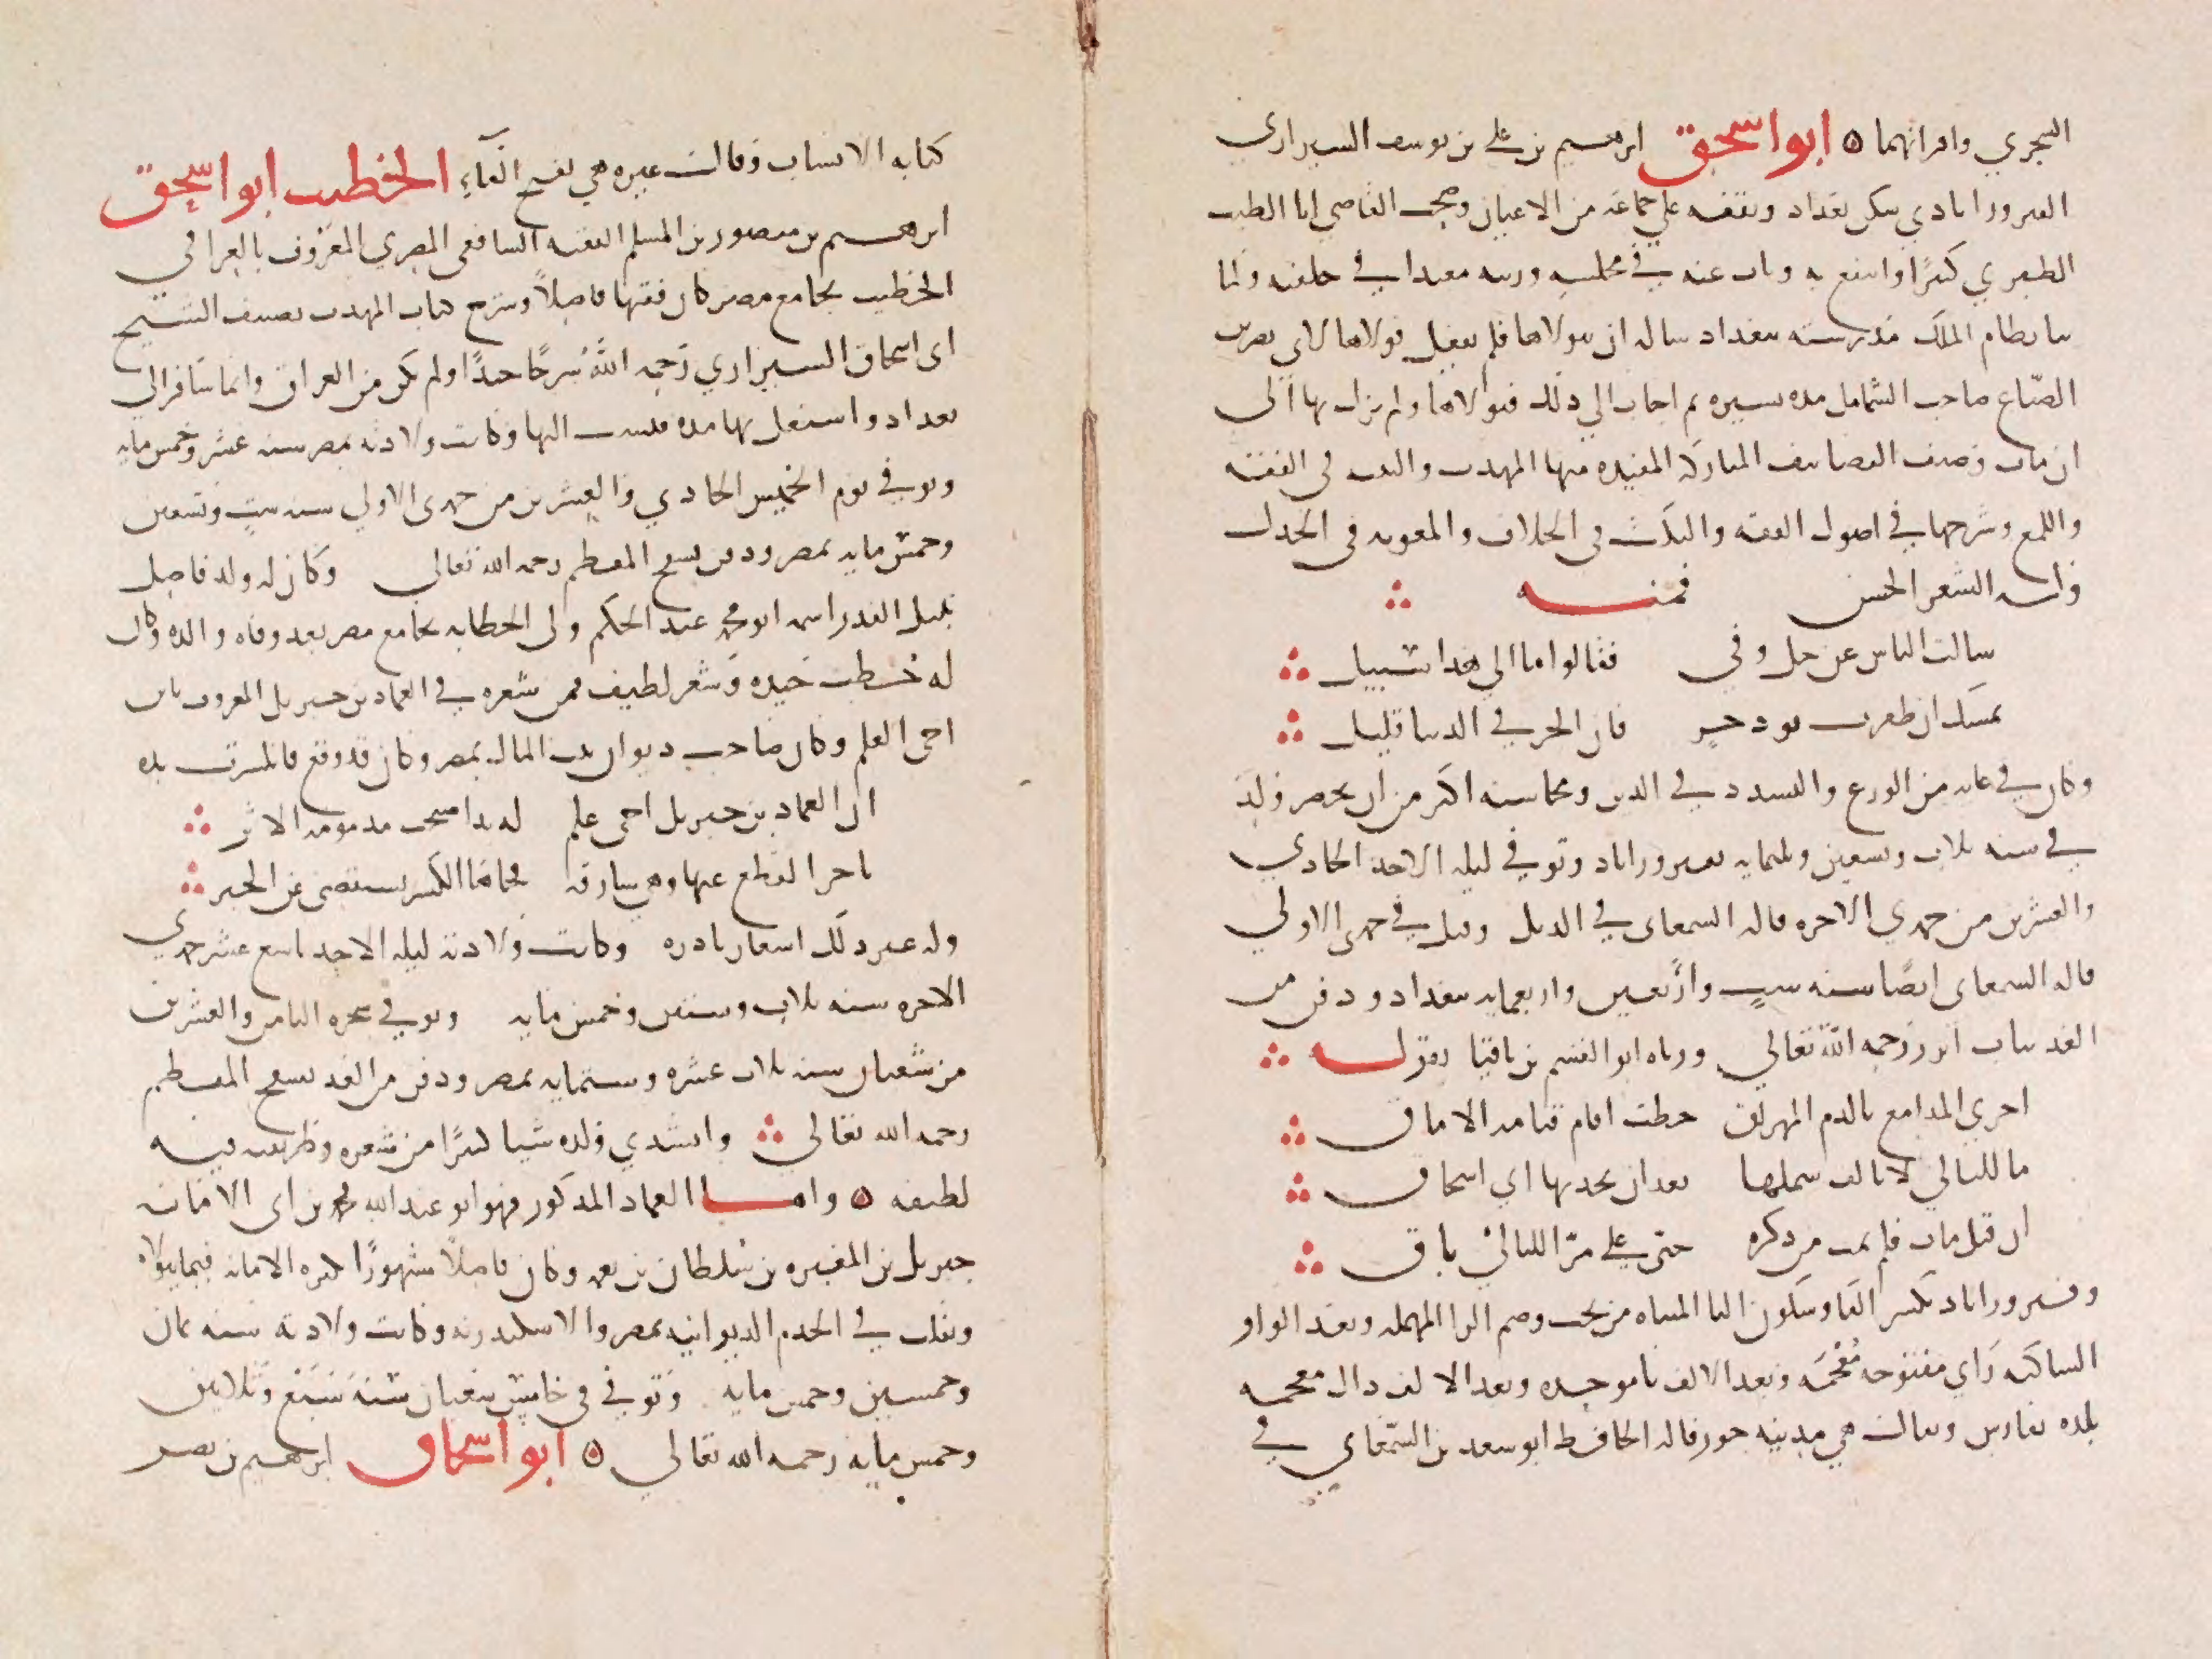 السجزي واقرانهما ه ابو اسحق ابرهيم بن علي بن يوسف الشيرازي
الفيروزابادي سكن بغداد وتفقه علي جماعة من الاعيان وصحب القاضي ابا الطيب
الطبري كثيرًا وانتفع به وناب عنه في مجلسه ورتبه معيدا في حلقته ولما
بنا نظام الملك مدرسته ببغداد ساله ان يتولاها فلم يفعل فولاها لابي نصر بن
الصبّاغ صاحب الشامل مدة يسيرة ثم اجاب الي ذلك فتولاها ولم يزل بها الي
ان مات وصنف التصانيف المباركة المفيدة منها المهذب والتنبيه في الفقه
واللمع وشرحها في اصول الفقه والنكت في الخلاف والمعونه في الجدل
وله الشعر الحسن فمنه
سالت الناس عن خل وفي فقالوا ما الي هذا سبيل
تمسك ان ظفرت بود حر فان الحر في الدنيا قليل
وكان في غايه من الورع والتشدد في الدين ومحاسنه اكثر من ان تحصر ولد
في سنه ثلاث وتسعين وثلثمايه بفيروزاباد وتوفي ليله الاحد الحادي
والعشرين من جمدي الاخره قاله السمعاني في الذيل وقيل في جمدي الاولي
قاله السمعاني ايضًا سنه ستٍ وأربعين واربعمايه ببغداد ودفن من
الغد بباب ابرز رحمه الله تعالي ورثاه ابو القسم بن ناقيا بقوله
اجري المدامع بالدم المهراق خطب اقام قيامه الاماق
ما لليالي لا تالف شملها بعد ابن بجدتها ابي اسحاق
ان قيل مات فلم يمت من ذكره حتى علي مرّ الليالي باق
وفيروزاباد بكسر الفا وسكون اليا المثناه من تحت وضم الرا المهمله وبعد الواو
الساكنه زاي مفتوحه مُعْجَمَه وبعد الالف با موحده وبعد الالف ذال معجمه
بلده بفارس ويقال هي مدينه جور قاله الحافظ ابو سعد بن السّمعاني في
كتابه الانساب وقال غيره هي بفتح الفآءِ الخطيب ابو اسحق
ابرهيم بن منصور بن المسلم الفقيه الشافعي المصري المعروف بالعراقي
الخطيب بجامع مصر كان فقيها فاضلاً وشرح كتاب المهذب تصنيف الشيخ
ابي اسحاق الشيرازي رحمه الله شرحًا جيدًا ولم يكن من العراق وانما سافر الي
بغداد واشتغل بها مده فنسب اليها وكانت ولادته بمصر سنه عشر وخمس مايه
وتوفي يوم الخميس الحادي والعشرين من جمدى الاولي سنه ستٍ وتسعين
وخمس مايه بمصر ودفن بسفح المقطم رحمه الله تعالى وكان له ولد فاضل
نبيل القدر اسمه ابو محمد عبد الحكم ولي الخطابه بجامع مصر بعد وفاه والده وكان
له خطب جيده وشعر لطيف فمن شعره في العماد بن جبريل المعروف بابن
اخي العلم وكان صاحب ديوان بيت المال بمصر وكان قد وقع فانكسرت يده
ان العماد بن جبريل اخي علم له يد اصبحت مذمومه الاثر
تاخر القطع عنها وهي سارقه فجاها الكسر يستقصي عن الخبر
وله غير ذلك اشعار نادره وكانت ولادته ليله الاحد تاسع عشر جمدي
الاخره سنه ثلاث وستين وخمس مايه وتوفي سحره الثامن والعشرين
من شعبان سنه ثلاث عشره وستمايه بمصر ودفن من الغد بسفح المقطم
رحمه الله تعالى وانشدني ولده شيا كثيرًا من شعره وطريقته فيه
لطيفه ه واما العماد المذكور فهو ابو عبد الله محمد بن ابي الامانه
جبريل بن المغيره بن سلطان بن نعمه وكان فاضلاً مشهورًا بكثره الامانه فيما يتولاه
وتقلب في الخدم الديوانيه بمصر والاسكندريه وكانت ولادته سنه ثمان
وخمسين وخمس مايه وتوفي في خامس شعبان سنة سَبْع وثلاثين
وخمس مايه رحمه الله تعالي ه ابو اسحاق ابرهيم بن نصر